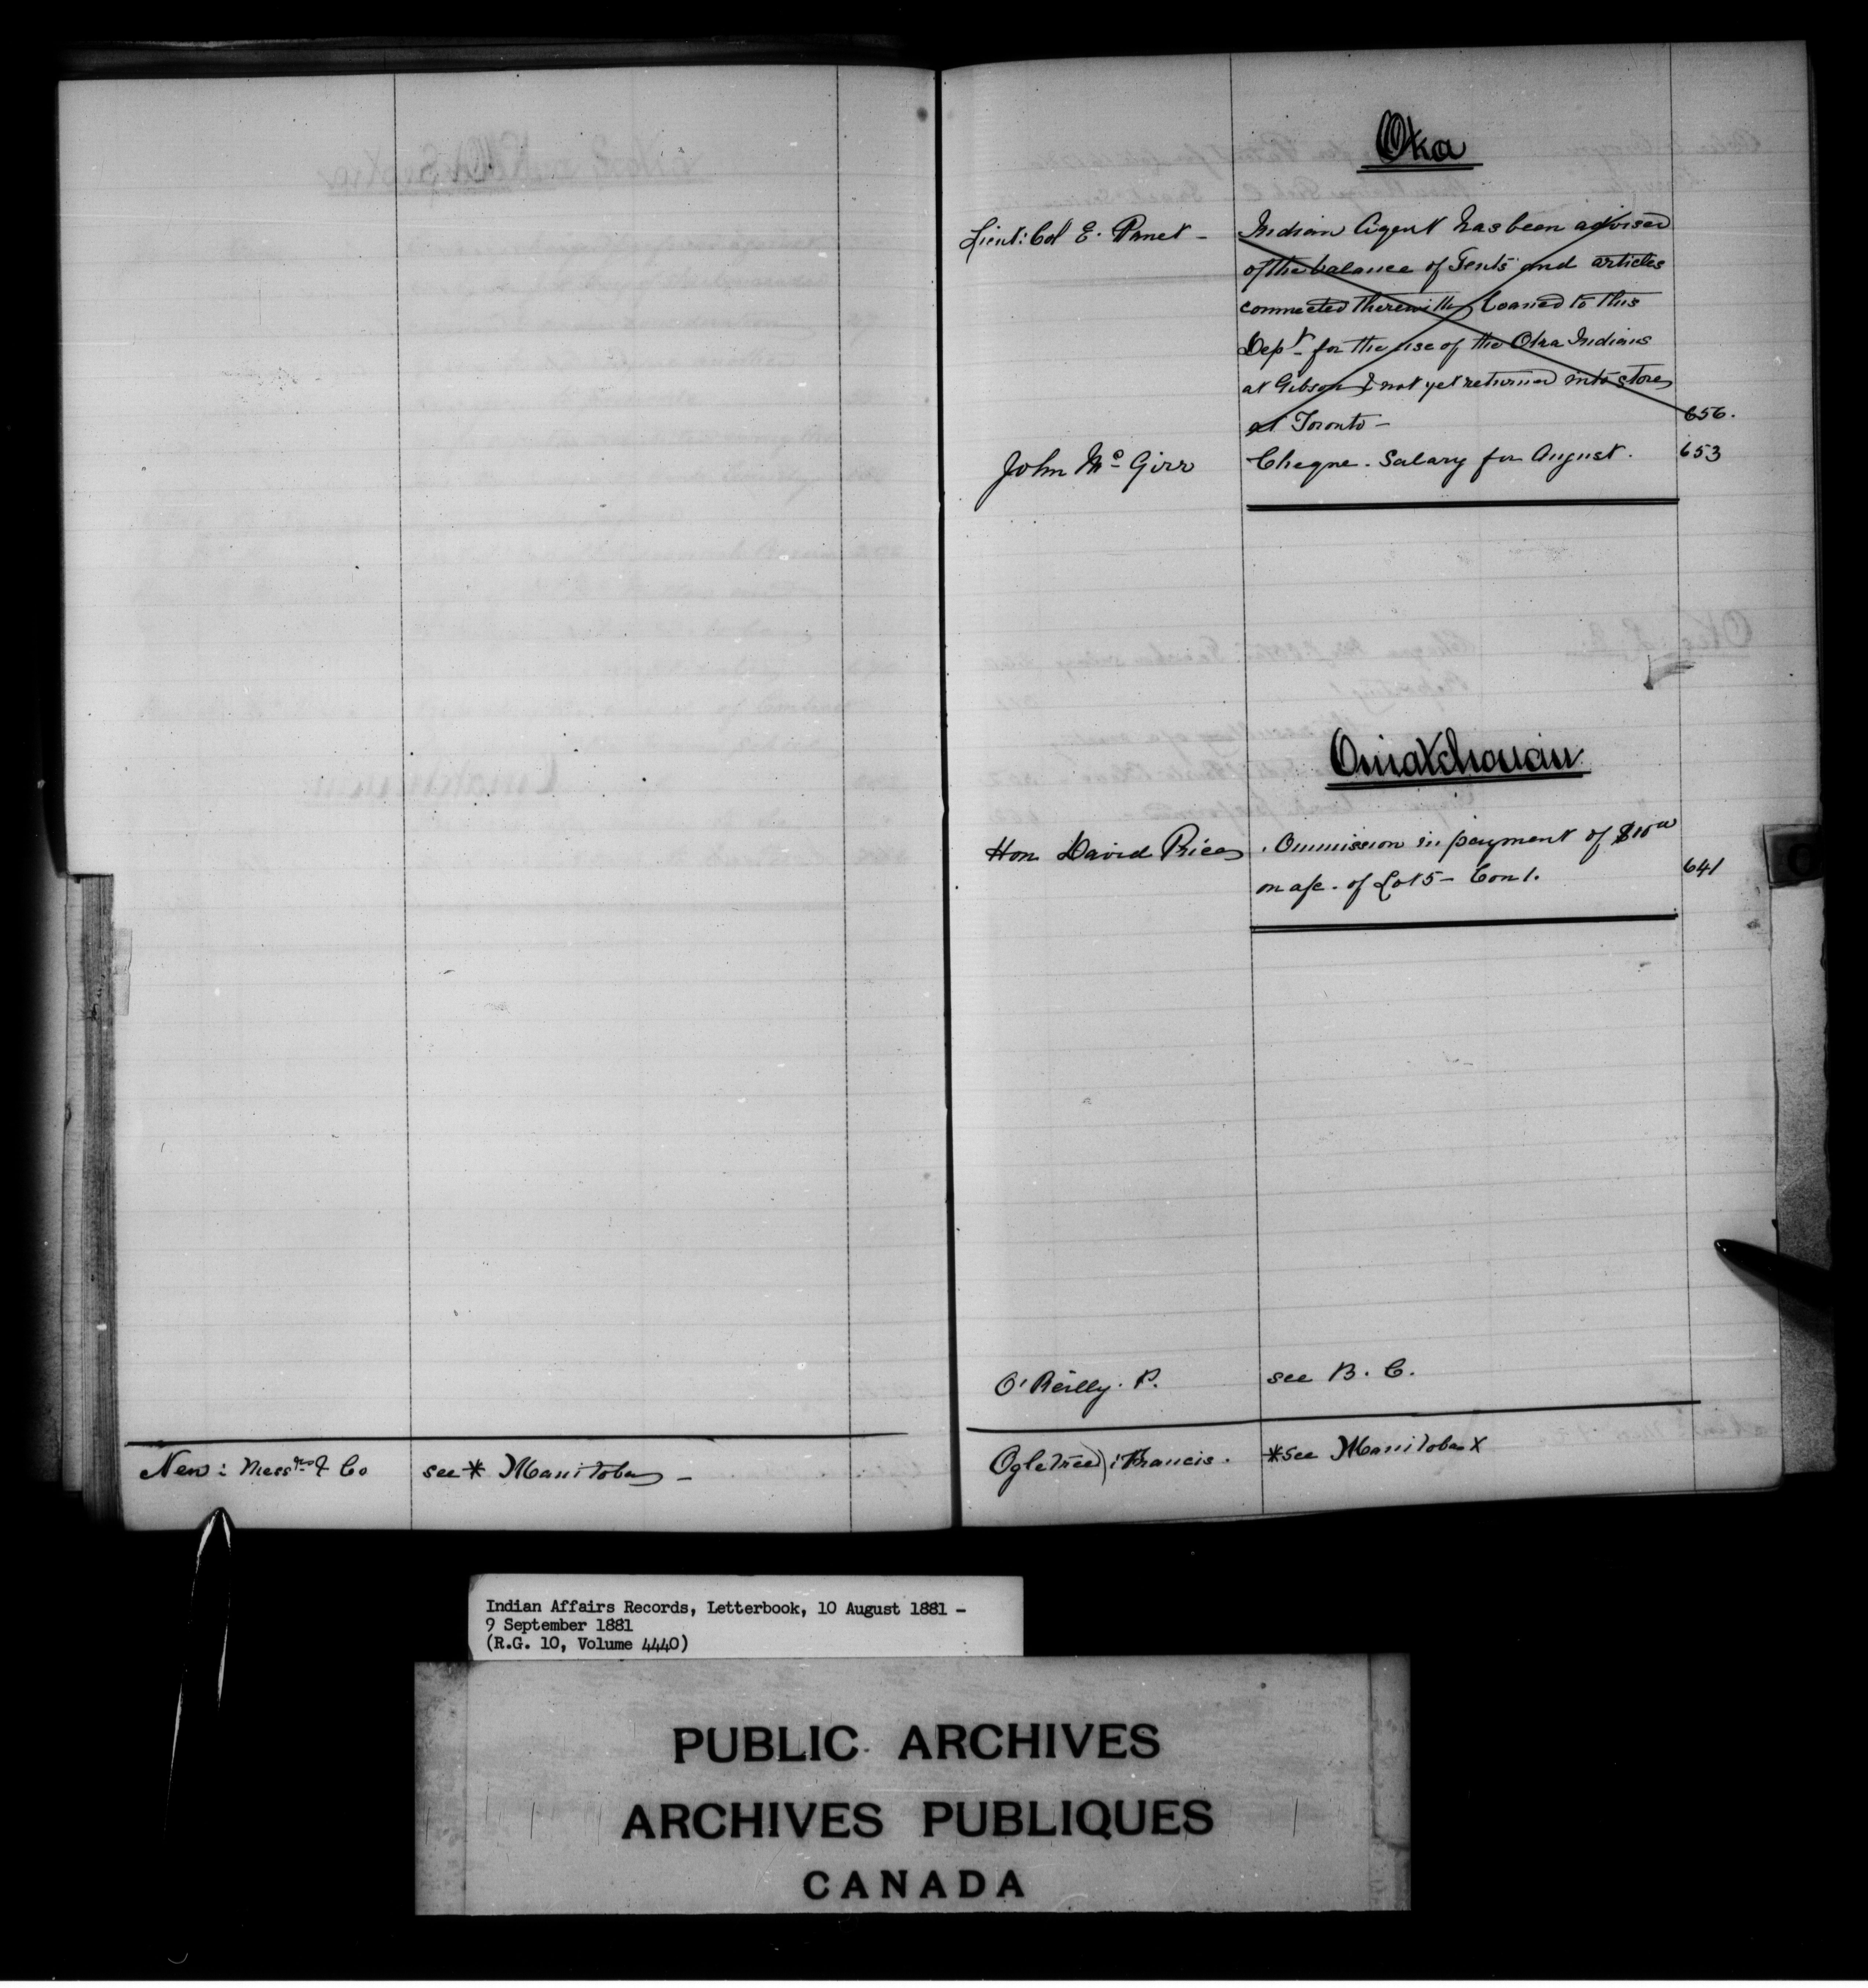 New: Mess.rs & Co see * Manitoba -
Oka
Lieut: Col E. Panet - Indian Agent has been advised
of the balance of Tents and articles
connected therewith, loaned to this
Dept. for the use of the Oka Indians
at Gibson & not yet returned into store
at Toronto - 656.
John Mc Girr Cheque. Salary for August. 653
Ouiatchouan
Hon David Price Ommission in payment of
on a/c. of Lot 5 - Con 1. 641
O'Reilly. P. see B. C.
Ogletree : Francis. *see Manitoba X
Indian Affairs Records, Letterbook, 10 August 1881 -
9 September 1881
(R.G. 10, Volume 4440)
PUBLIC ARCHIVES
ARCHIVES PUBLIQUES
CANADA